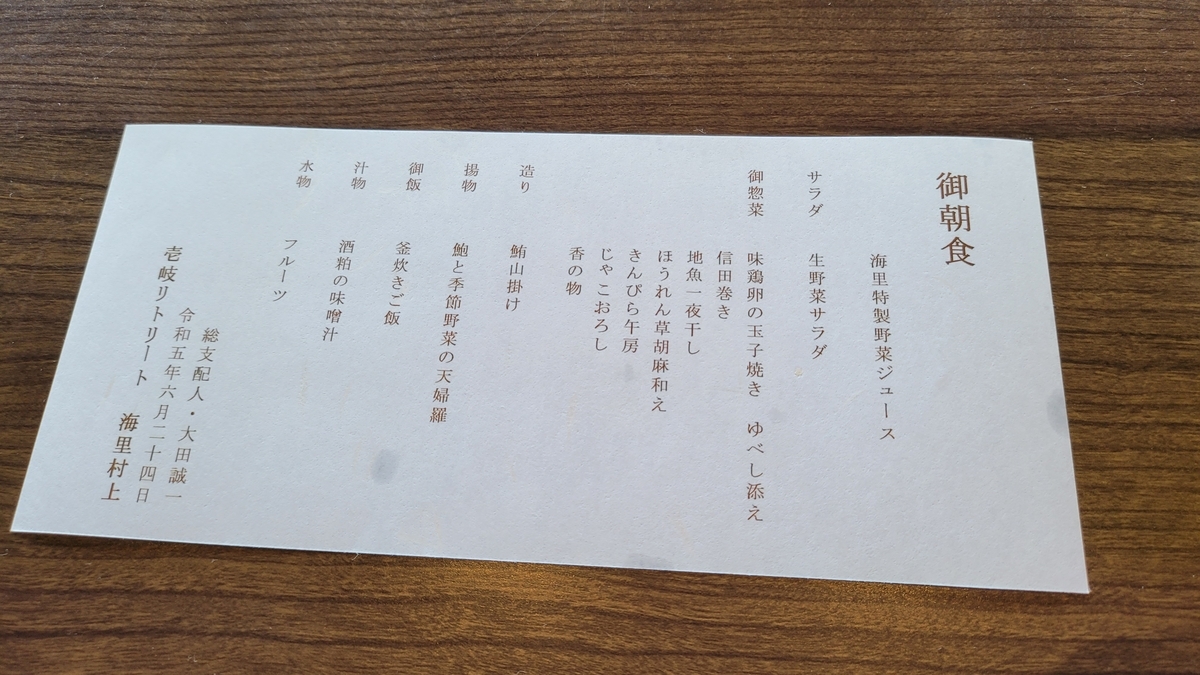 御朝食
海里特製野菜ジュース
サラダ 生野菜サラダ
御惣菜 味鶏卵の玉子焼き ゆべし添え
信田巻き
地魚一夜干し
ほうれん草胡麻和え
きんぴら牛房
じゃこおろし
香の物
造り 鮪山掛け
揚物 鮑と季節野菜の天婦羅
御飯 釜炊きご飯
汁物 酒粕の味噌汁
水物 フルーツ
総支配人・大田誠一
令和五年六月二十四日
壱岐リトリート 海里村上